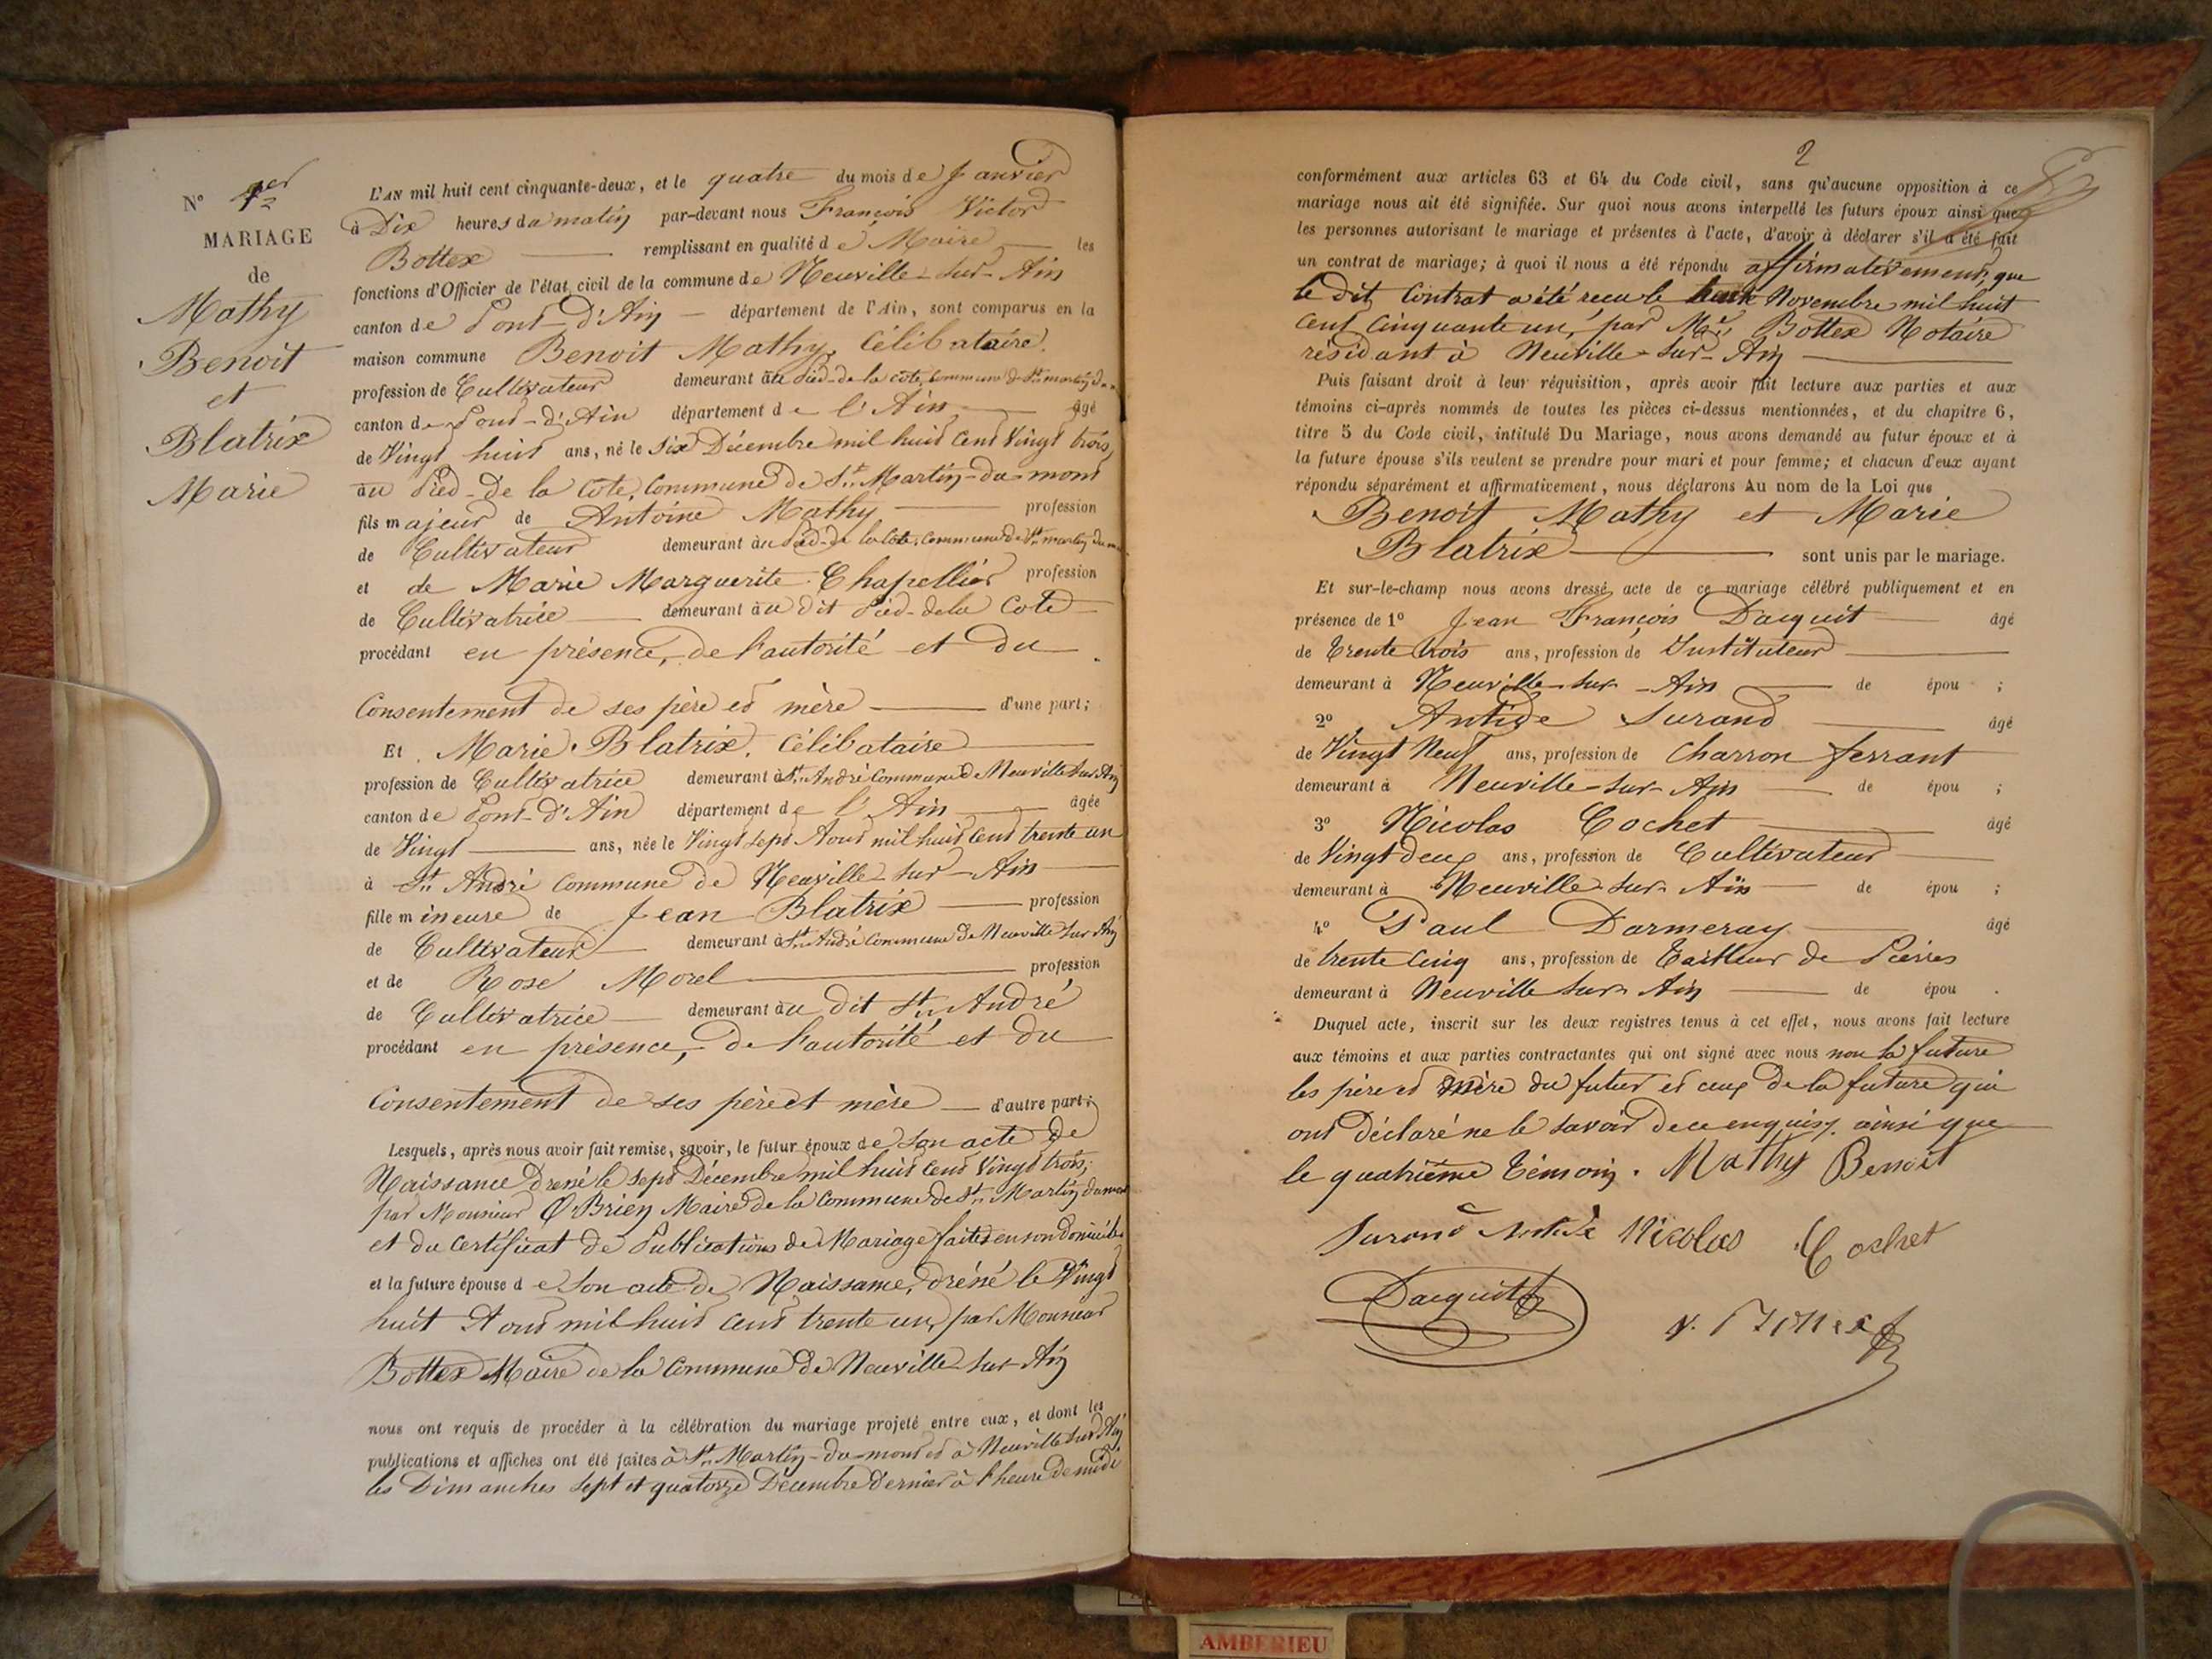 N° 1er
MARIAGE
de
Mathy
Benoit
et
Blatrix
Marie
L'AN mil huit cent cinquante-deux, et le quatre du mois de Janvier
à Dix heures du matin par-devant nous François Victor
Bottex remplissant en qualité de Maire les
fonctions d'Officier de l'état civil de la commune de Neuville-sur-Ain
canton de Pont-d'Ain département de l'Ain, sont comparus en la
maison commune Benoit Mathy, Célibataire.
profession de Cultivateur demeurant au Pied-de la cote, commune de St martin du
canton de Pont-d'Ain département de l'Ain âgé
de Vingt huit ans, né le Six Décembre mil huit Cent Vingt trois,
au Pied-de la Cote, Commune de St Martin-du-mont
fils majeur de Antoine Mathy profession
de Cultivateur demeurant au Pied-de la Cote, commune de St martin du
et de Marie Marguerite Chapellier profession
de Cultivatrice demeurant au dit Pied-de la Cote
procédant en présence, de l'autorité et du
Consentement de ses père et mère d'une part;
Et Marie Blatrix, Célibataire
profession de Cultivatrice demeurant à St André Commune de Neuville sur Ain
canton de Pont-d'Ain département de l'Ain âgée
de Vingt ans, née le Vingt sept Aout mil huit Cent trente un
à St André Commune de Neuville-sur-Ain
fille mineure de Jean Blatrix profession
de Cultivateur demeurant à St André Commune de Neuville sur Ain
et de Rose Morel profession
de Cultivatrice demeurant au dit St André
procédant en présence, de l'autorité et du
Consentement de ses père et mère d'autre part;
Lesquels, après nous avoir fait remise, savoir, le futur époux de Son acte de
Naissance dressé le Sept Décembre mil huit Cent Vingt trois,
par Monsieur O'Brien Maire de la Commune de St Martin du mont
et du Certificat de Publications de Mariage faites en son domicile
et la future épouse de Son acte de Naissance, dréssé le Vingt
huit Aout mil huit Cent trente un, par Monsieur
Bottex Maire de la Commune de Neuville-sur-Ain
nous ont requis de procéder à la célébration du mariage projeté entre eux, et dont les
publications et affiches ont été faites à St Martin-du-mont et à Neuville sur Ain
les Dimanches Sept et quatorze Décembre dernier à l'heure de midi
2
conformément aux articles 63 et 64 du Code civil, sans qu'aucune opposition à ce
mariage nous ait été signifiée. Sur quoi nous avons interpellé les futurs époux ainsi que
les personnes autorisant le mariage et présentes à l'acte, d'avoir à déclarer s'il a été fait
un contrat de mariage; à quoi il nous a été répondu affirmativement, que
le dit Contrat a été reçu le huit Novembre mil huit
Cent Cinquante un, par Me Bottex Notaire
résidant à Neuville-sur-Ain
Puis faisant droit à leur réquisition, après avoir fait lecture aux parties et aux
témoins ci-après nommés de toutes les pièces ci-dessus mentionnées, et du chapitre 6,
titre 5 du Code civil, intitulé Du Mariage, nous avons demandé au futur époux et à
la future épouse s'ils veulent se prendre pour mari et pour femme; et chacun d'eux ayant
répondu séparément et affirmativement, nous déclarons Au nom de la Loi que
Benoit Mathy et Marie
Blatrix sont unis par le mariage.
Et sur-le-champ nous avons dressé acte de ce mariage célébré publiquement et en
présence de 1° Jean François Dacquit âgé
de Trente trois ans, profession de Instituteur
demeurant à Neuville-sur-Ain de épou ;
2° Antide Surand âgé
de Vingt Neuf ans, profession de Charron ferrant
demeurant à Neuville-sur-Ain de épou ;
3° Nicolas Cochet âgé
de Vingt deux ans, profession de Cultivateur
demeurant à Neuville-sur-Ain de épou ;
4° Paul Darmeray âgé
de trente Cinq ans, profession de Tailleur de Pierres
demeurant à Neuville sur Ain de épou .
Duquel acte, inscrit sur les deux registres tenus à cet effet, nous avons fait lecture
aux témoins et aux parties contractantes qui ont signé avec nous non la future
les père et mère du futur et ceux de la future qui
ont déclaré ne le savoir de ce enquis, ainsi que
le quatrième témoin. Mathy Benoit
Surand Antide Nicolas Cochet
Dacquit
V. Bottex
AMBERIEU